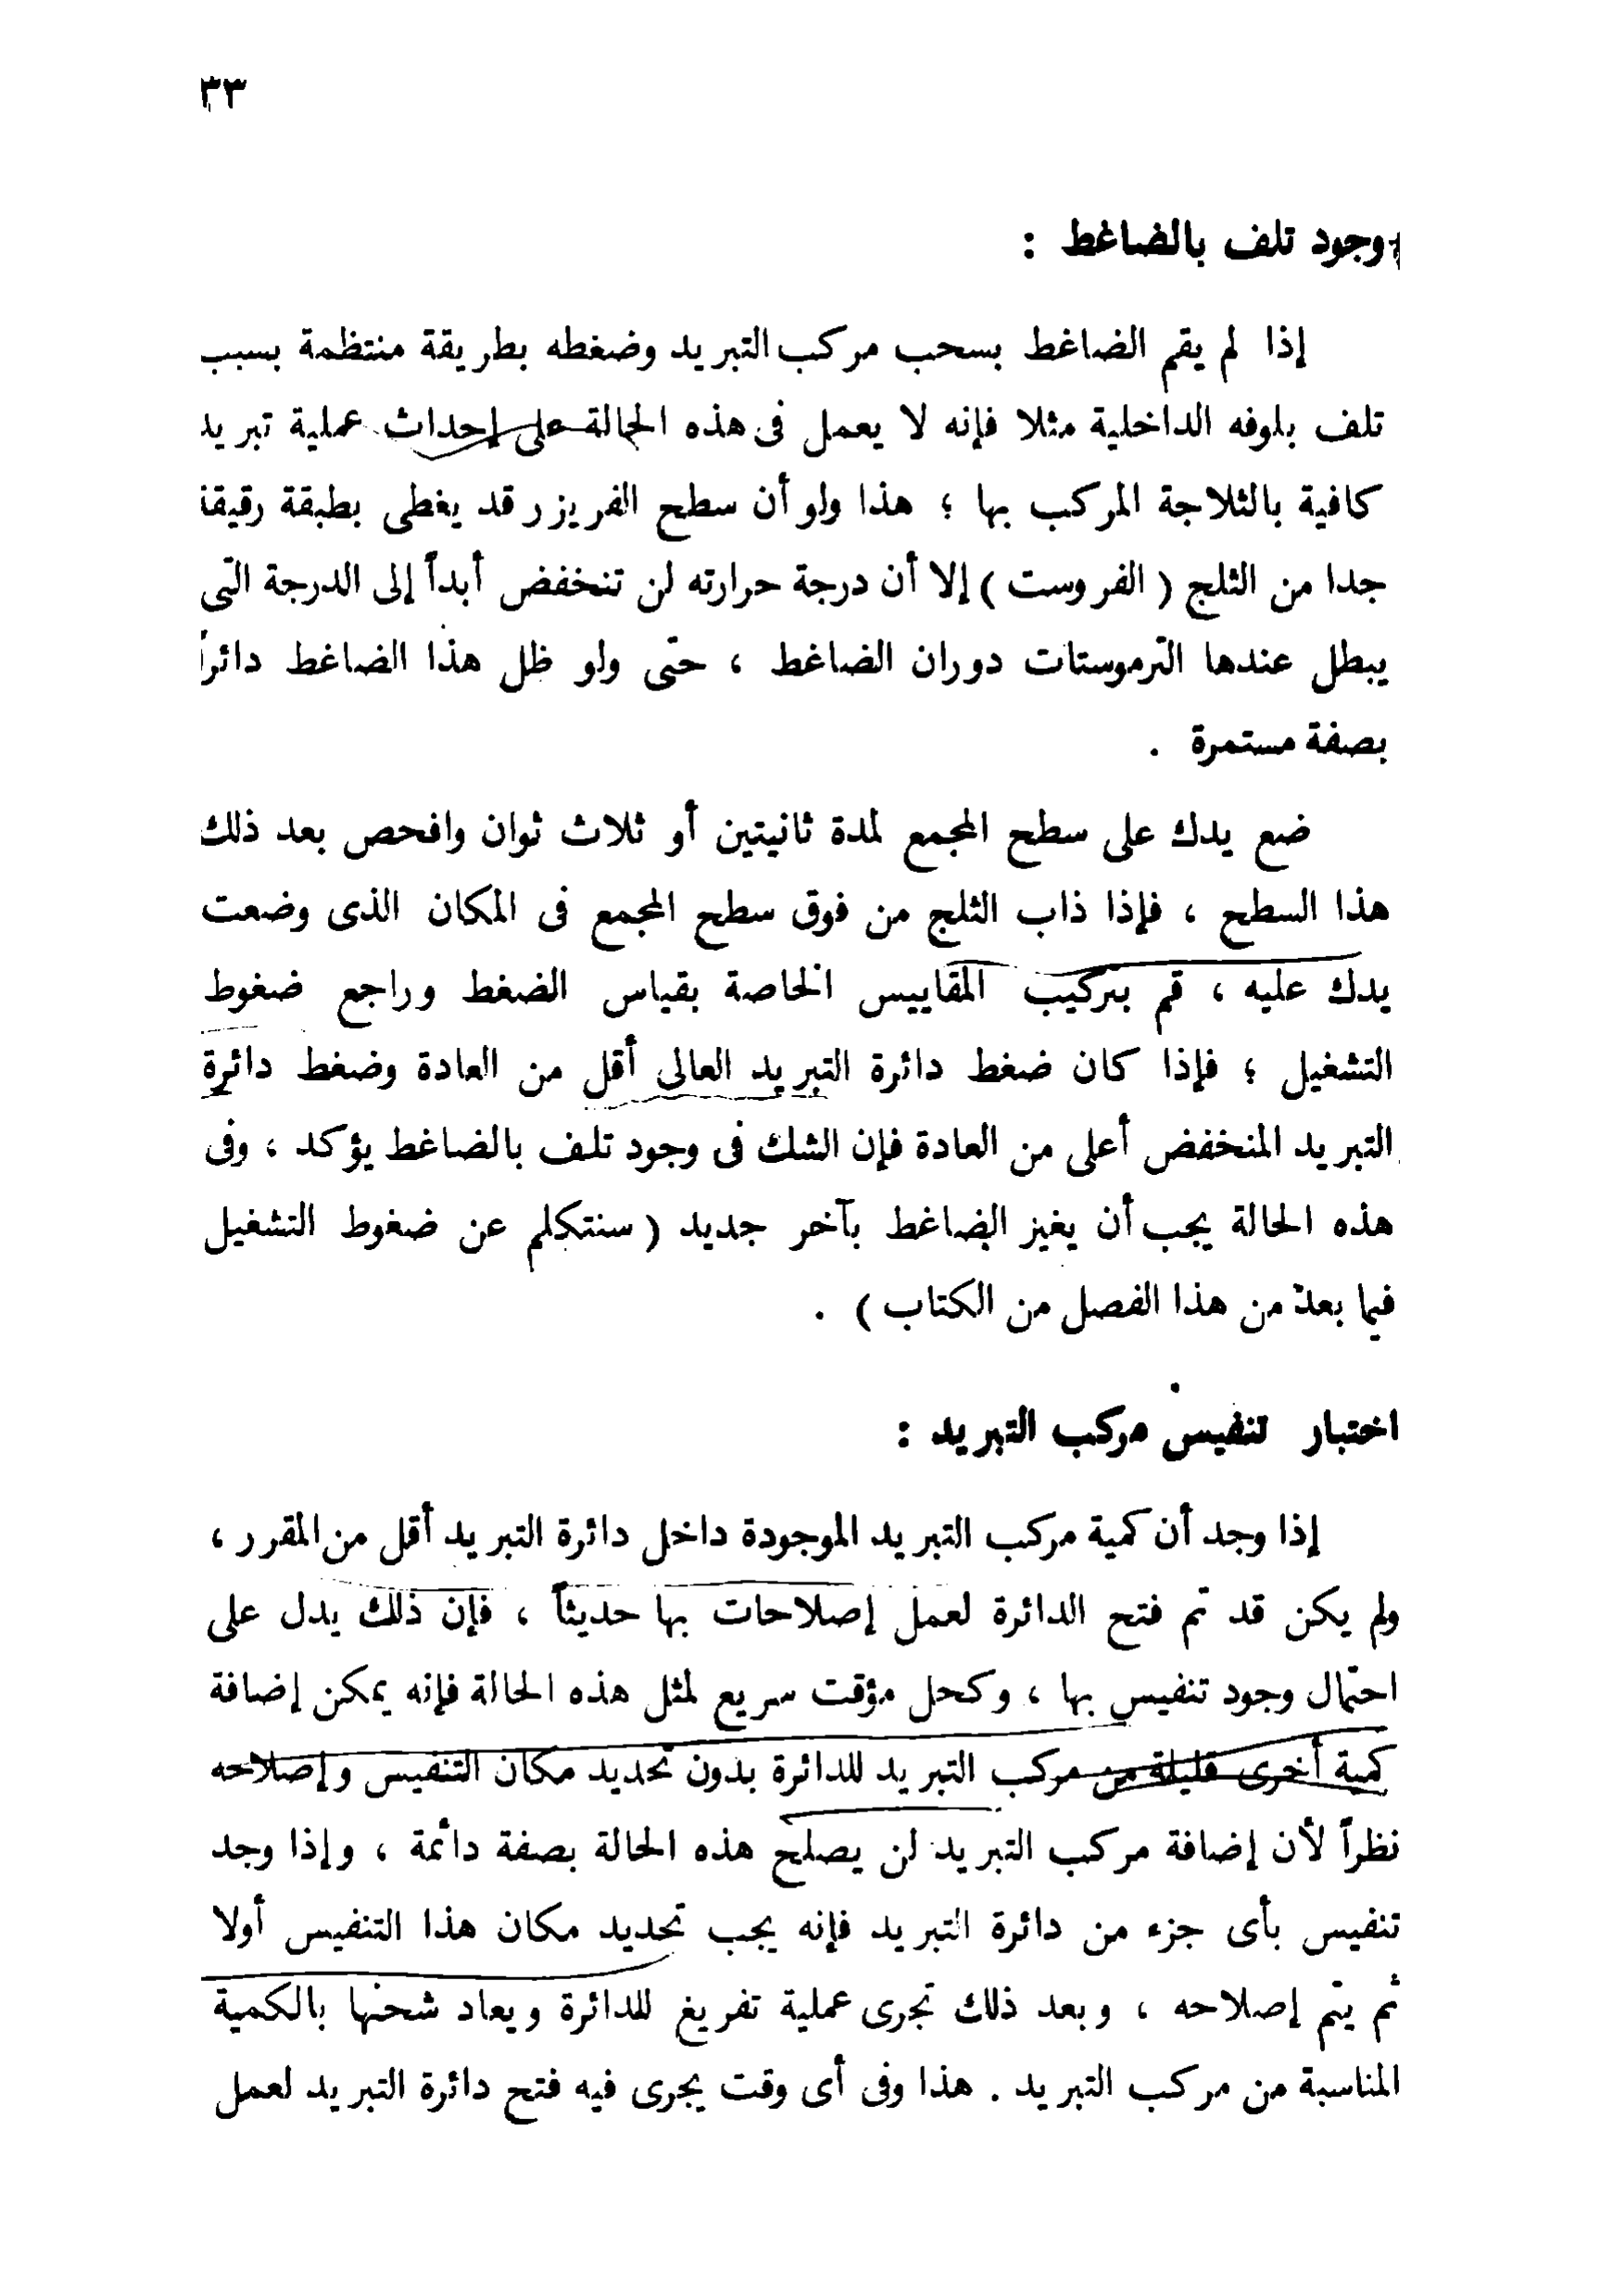 ٣٣
وجود تلف بالضاغط :
إذا لم يقم الضاغط بسحب مركب التبريد وضغطه بطريقة منتظمة بسبب
تلف بلوفه الداخلية مثلا فإنه لا يعمل فى هذه الحالة على إحداث عملية تبريد
كافية بالثلاجة المركب بها ؛ هذا ولو أن سطح الفريزر قد يغطى بطبقة رقيقة
جدا من الثلج ( الفروست ) إلا أن درجة حرارته لن تنخفض أبداً إلى الدرجة التى
يبطل عندها الترموستات دوران الضاغط ، حتى ولو ظل هذا الضاغط دائراً
بصفة مستمرة .
ضع يدك على سطح المجمع لمدة ثانيتين أو ثلاث ثوان وافحص بعد ذلك
هذا السطح ، فإذا ذاب الثلج من فوق سطح المجمع فى المكان الذى وضعت
يدك عليه ، قم بتركيب المقاييس الخاصة بقياس الضغط وراجع ضغوط
التشغيل ؛ فإذا كان ضغط دائرة التبريد العالى أقل من العادة وضغط دائرة
التبريد المنخفض أعلى من العادة فإن الشك فى وجود تلف بالضاغط يؤكد ، وفى
هذه الحالة يجب أن يغير الضاغط بآخر جديد ( سنتكلم عن ضغوط التشغيل
فيما بعد من هذا الفصل من الكتاب ) .
اختبار تنفيس مركب التبريد :
إذا وجد أن كمية مركب التبريد الموجودة داخل دائرة التبريد أقل من المقرر ،
ولم يكن قد تم فتح الدائرة لعمل إصلاحات بها حديثاً ، فإن ذلك يدل على
احتمال وجود تنفيس بها ، وكحل مؤقت سريع لمثل هذه الحالة فإنه يمكن إضافة
كمية أخرى قليلة من مركب التبريد للدائرة بدون تحديد مكان التنفيس وإصلاحه
نظراً لأن إضافة مركب التبريد لن يصلح هذه الحالة بصفة دائمة ، وإذا وجد
تنفيس بأى جزء من دائرة التبريد فإنه يجب تحديد مكان هذا التنفيس أولا
ثم يتم إصلاحه ، وبعد ذلك تجرى عملية تفريغ للدائرة ويعاد شحنها بالكمية
المناسبة من مركب التبريد . هذا وفى أى وقت يجرى فيه فتح دائرة التبريد لعمل